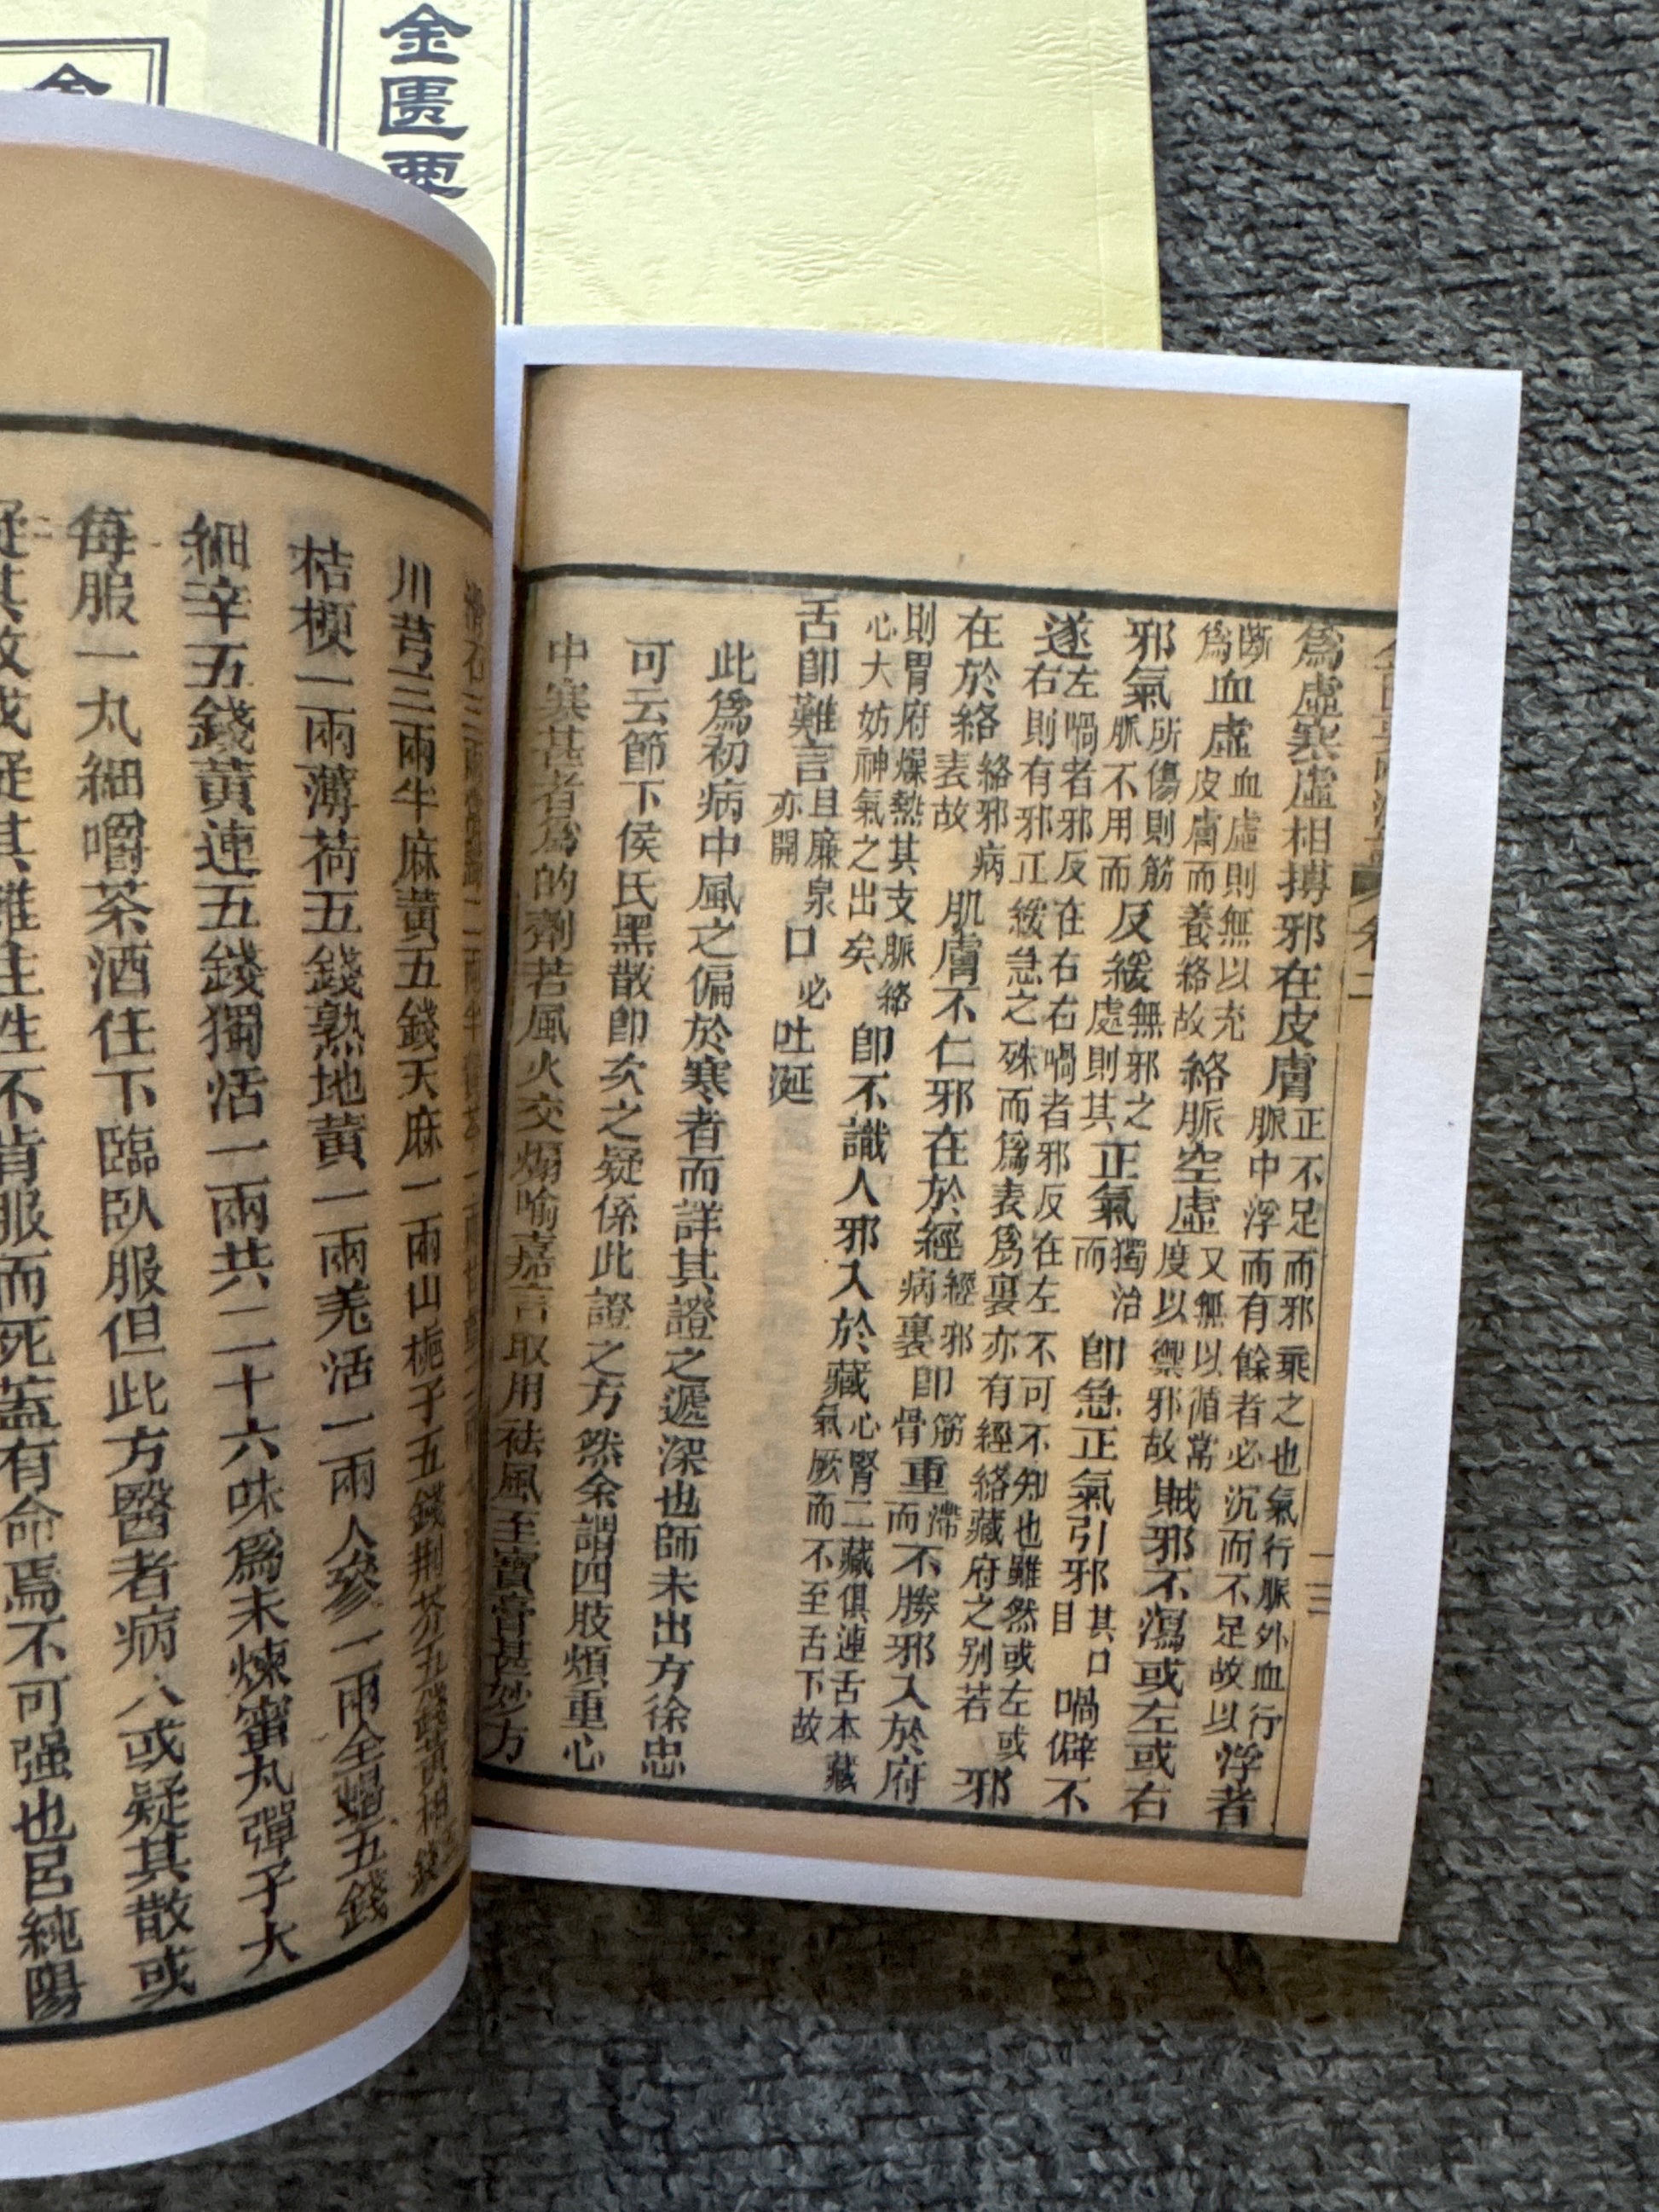 金匱要
為虛寒虛相摶邪在皮膚正不足而邪乘之也氣行脈外血行脈中浮而有餘者必沉而不足故以浮者
斷為血虛血虛則無以充皮膚而養絡故絡脈空虛又無以循常度以禦邪故賊邪不瀉或左或右
邪氣所傷則筋脈不用而反緩無邪之處則其正氣獨治而即急正氣引邪其口目喎僻不
遂左喎者邪反在右右喎者邪反在左不可不知也雖然或左或右則有邪正緩急之殊而為表為裏亦有經絡藏府之别若邪
在於絡絡邪病表故肌膚不仁邪在於經經邪病裏即筋骨重滯而不勝邪入於府
則胃府燥熱其支脈絡心大妨神氣之出矣即不識人邪入於藏心腎二藏俱連舌本藏氣厥而不至舌下故
舌即難言且廉泉亦開口必吐涎
此為初病中風之偏於寒者而詳其證之遞深也師未出方徐忠
可云節下侯氏黑散即次之疑係此證之方然余謂四肢煩重心
中寒甚者為的劑若風火交煽喻嘉言取用袪風至寶膏甚妙方
滑石三兩
川芎三兩半麻黃五錢天麻一兩山梔子五錢荆芥五錢黃柏五錢
桔梗一兩薄荷五錢熟地黃一兩羌活一兩人參一兩全蝎五錢
細辛五錢黃連五錢獨活一兩共二十六味為末煉蜜丸彈子大
每服一丸細嚼茶酒任下臨臥服但此方醫者病人或疑其散或
疑其攻或疑其雜往往不肯服而死蓋有命焉不可强也呂純陽